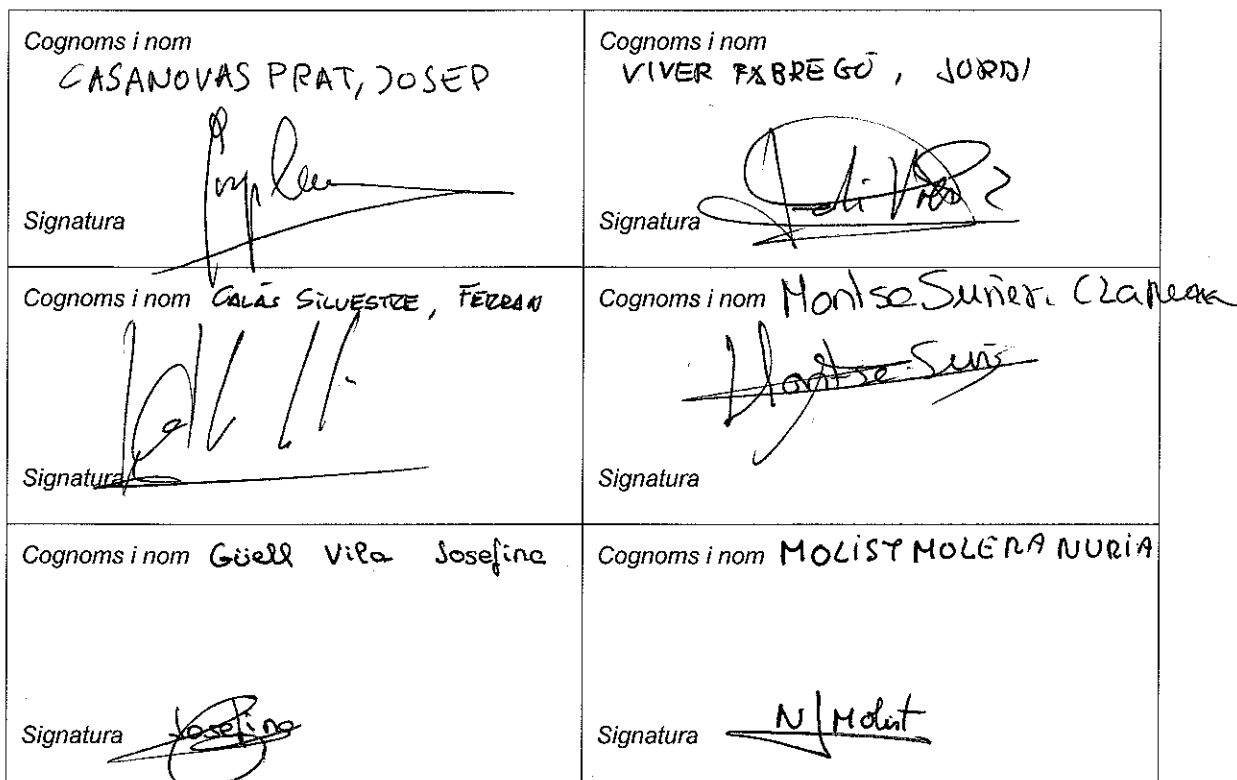 Cognoms i nom
CASANOVAS PRAT, JOSEP
Signatura
Cognoms i nom
VIVER FABREGÓ, JORDI
Jordi Viver
Signatura
Cognoms i nom GALÁS SILVESTRE, FERRAN
Signatura
Cognoms i nom Montse Suñer
Montse Suñe
Signatura
Cognoms i nom Güell Vila Josefina
Signatura Josefina
Cognoms i nom MOLIST MOLERA NURIA
Signatura N Molist